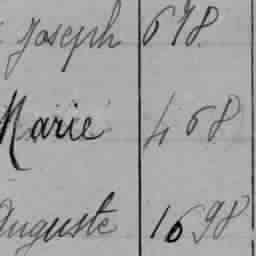 Joseph 678
Marie 468
Auguste 1698